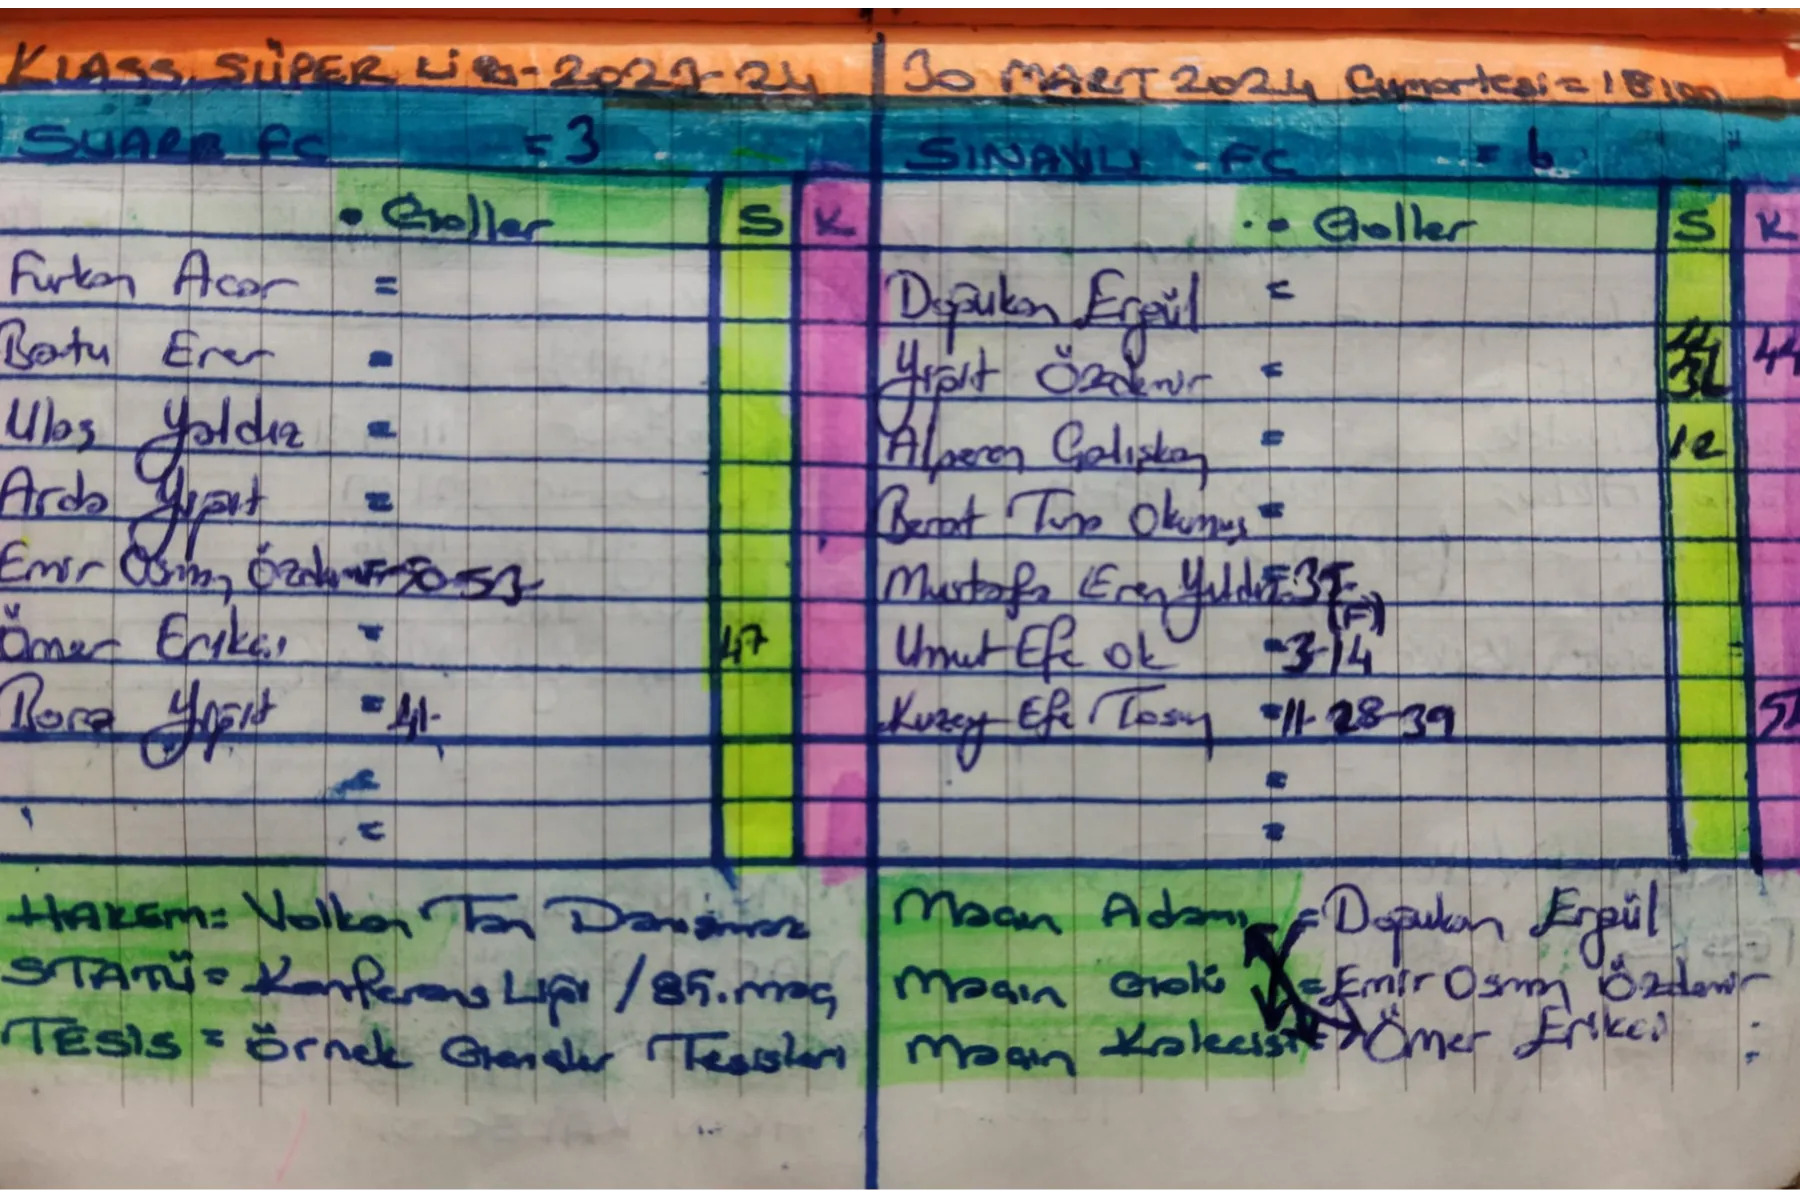 KLASS SÜPER Lig-2023-24
30 MART 2024 Cumartesi = 18:00
SUARE FC = 3
SINAVLI FC = 6
• Goller S K
• Goller S K
Furkan Acar =
Doğukan Ergül =
Batu Erer =
Yiğit Özdemir = 44
Ulaş Yaldız =
Alperen Çalışkan = 12
Arda Yiğit =
Berat Tuna Okumuş =
Emir Osman Özdemir = 50-53
Mustafa Eren Yıldız = 37
Ömer Erikci = 47
Umut Efe Ok = 3-14 (F)
Bora Yiğit = 41-
Kuzey Efe Tosun = 11-28-39
=
=
=
=
HAKEM = Volkan Tan Danışmaz
STATÜ = Konferans Ligi / 85. maç
TESİS = Örnek Gençler Tesisleri
Maçın Adamı = Doğukan Ergül
Maçın Golü = Emir Osman Özdemir
Maçın Kalecisi = Ömer Erikci